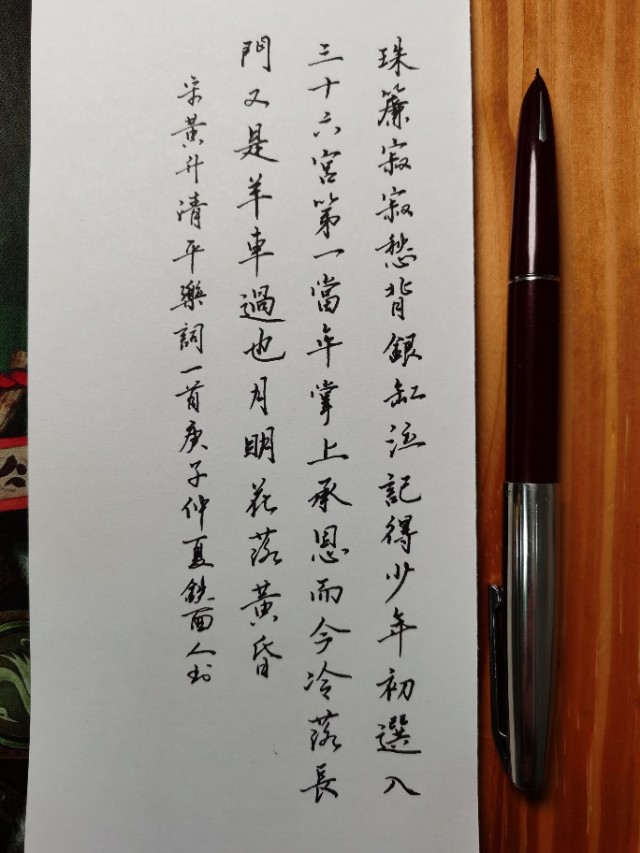 珠簾寂寂愁背銀缸泣記得少年初選入
三十六宮第一當年掌上承恩而今冷落長
門又是羊車過也月明花落黃昏
宋黃升清平樂詞一首庚子仲夏鉄面人书